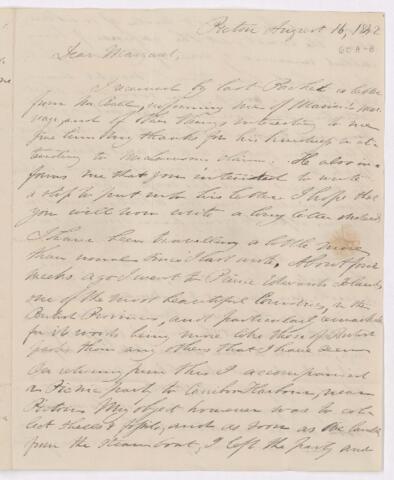 Pictou August 16, 1842
Dear Margaret,
I received by last Packet a letter
from Mr. informing me of
and of other things interesting to me
give him my thanks for his kindness in at
tending to . He also in
forms me that you intended to write
a slip to put into his letter I hope that
you will soon write a long letter instead.
I have been travelling a little more
than usual since I last wrote. About four
weeks ago I went to Prince Edwards Island,
one of the most beautiful Countries in the
British Provinces, and particularly remarkable
for its woods being more like those of
than any others that I have seen
On returning from this I accompanied
a Picnic party to Harbour, near
Pictou. My object however was to col
lect shells & fossils, and as soon as we landed
from the steamboat, I left the party and